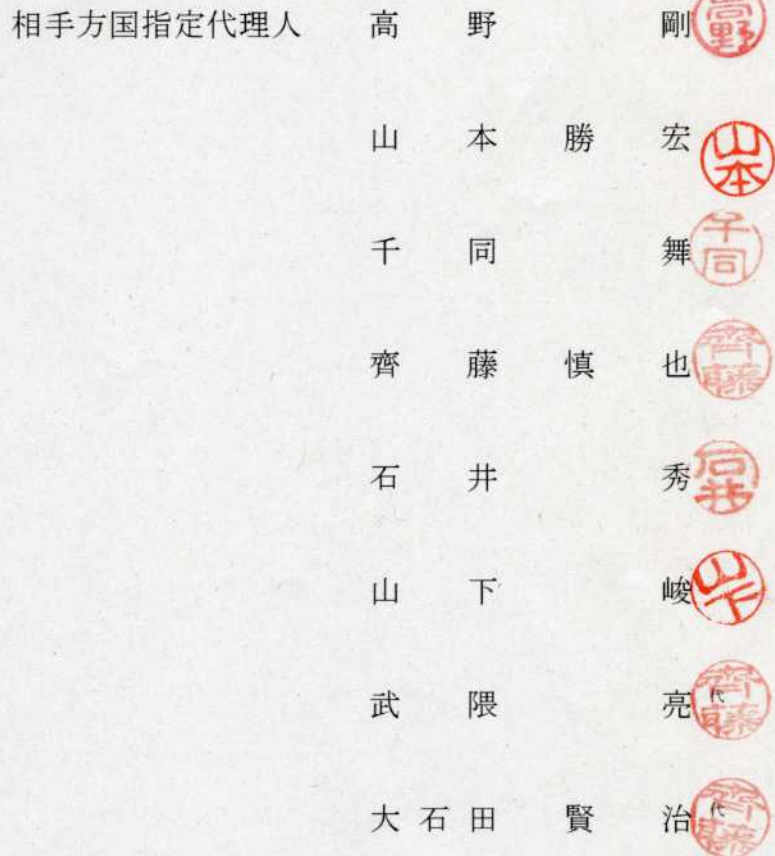 相手方国指定代理人 高野 剛 高野
山本勝宏 山本
千同 舞 千同
齊藤慎也 齊藤
石井 秀 石井
山下 峻 山下
武隈 亮 代 齊藤
大石田賢治 代 齊藤